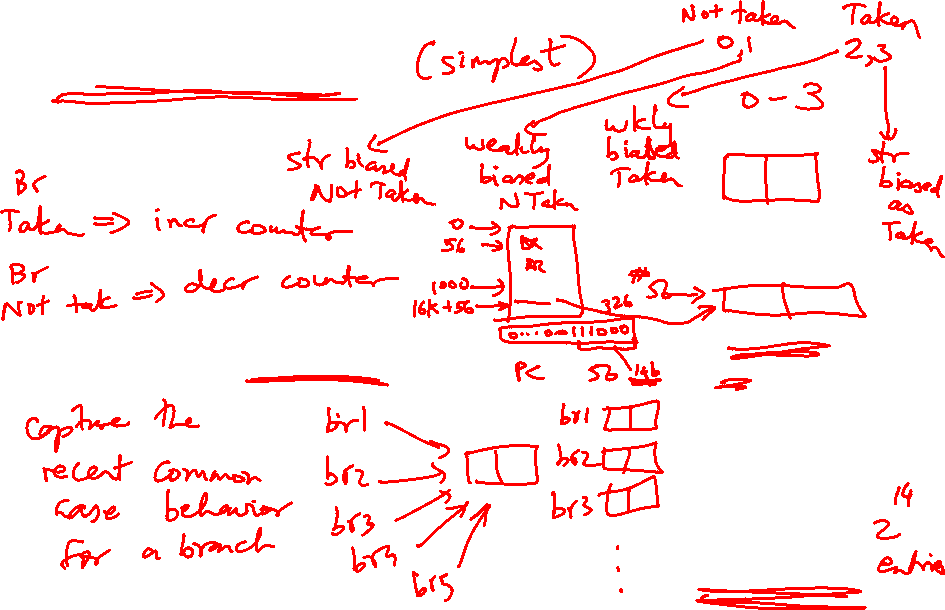 Not taken Taken
(simplest) 0,1 2,3
0 - 3
str biased
Not Taken
weakly
biased
NTaken
wkly
biased
Taken
str
biased
as
Taken
Br
Taken => incr counter
Br
Not tak => decr counter
0
56
1000
16k+56
BR
326
56
0...0-111000
PC 56 14b
capture the
recent common
case behavior
for a branch
br1
br2
br3
br4
br5
br1
br2
br3
14
2
entries